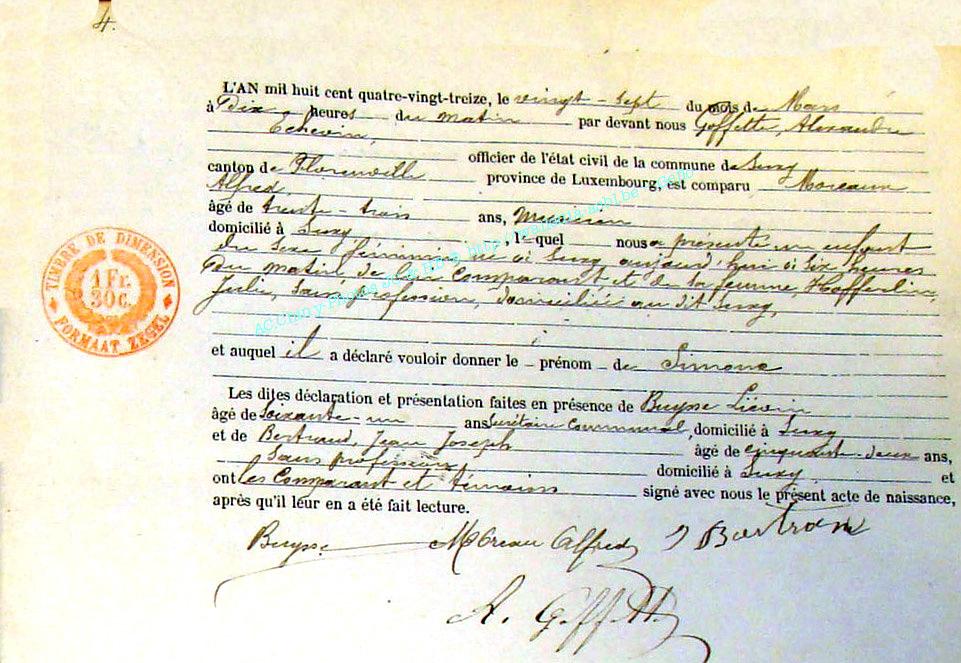 4.
L'AN mil huit cent quatre-vingt-treize, le vingt-sept du mois de Mars
à Dix heures du matin par devant nous Goffette, Alexandre
Echevin,
officier de l'état civil de la commune de Suxy
canton de Florenville province de Luxembourg, est comparu Moreaux
Alfred
âgé de trente-trois ans, Musicien
domicilié à Suxy, lequel nous a présenté un enfant
du sexe féminin né à Suxy aujourd'hui à six heures
du matin de lui comparant et de sa femme,
Julie, sans profession, domiciliée au dit Suxy,
et auquel il a déclaré vouloir donner le prénom de Simone
Les dites déclaration et présentation faites en présence de Buysse Liévin
âgé de soixante-un ans Secrétaire Communal, domicilié à Suxy
et de Bertrand, Jean Joseph âgé de cinquante-deux ans,
Sans profession, domicilié à Suxy et
ont les Comparant et témoins signé avec nous le présent acte de naissance,
après qu'il leur en a été fait lecture.
Buysse Moreau Alfred J Bertrand
A. Goffette
TIMBRE DE DIMENSION
1 Fr.
30c.
FORMAAT ZEGEL